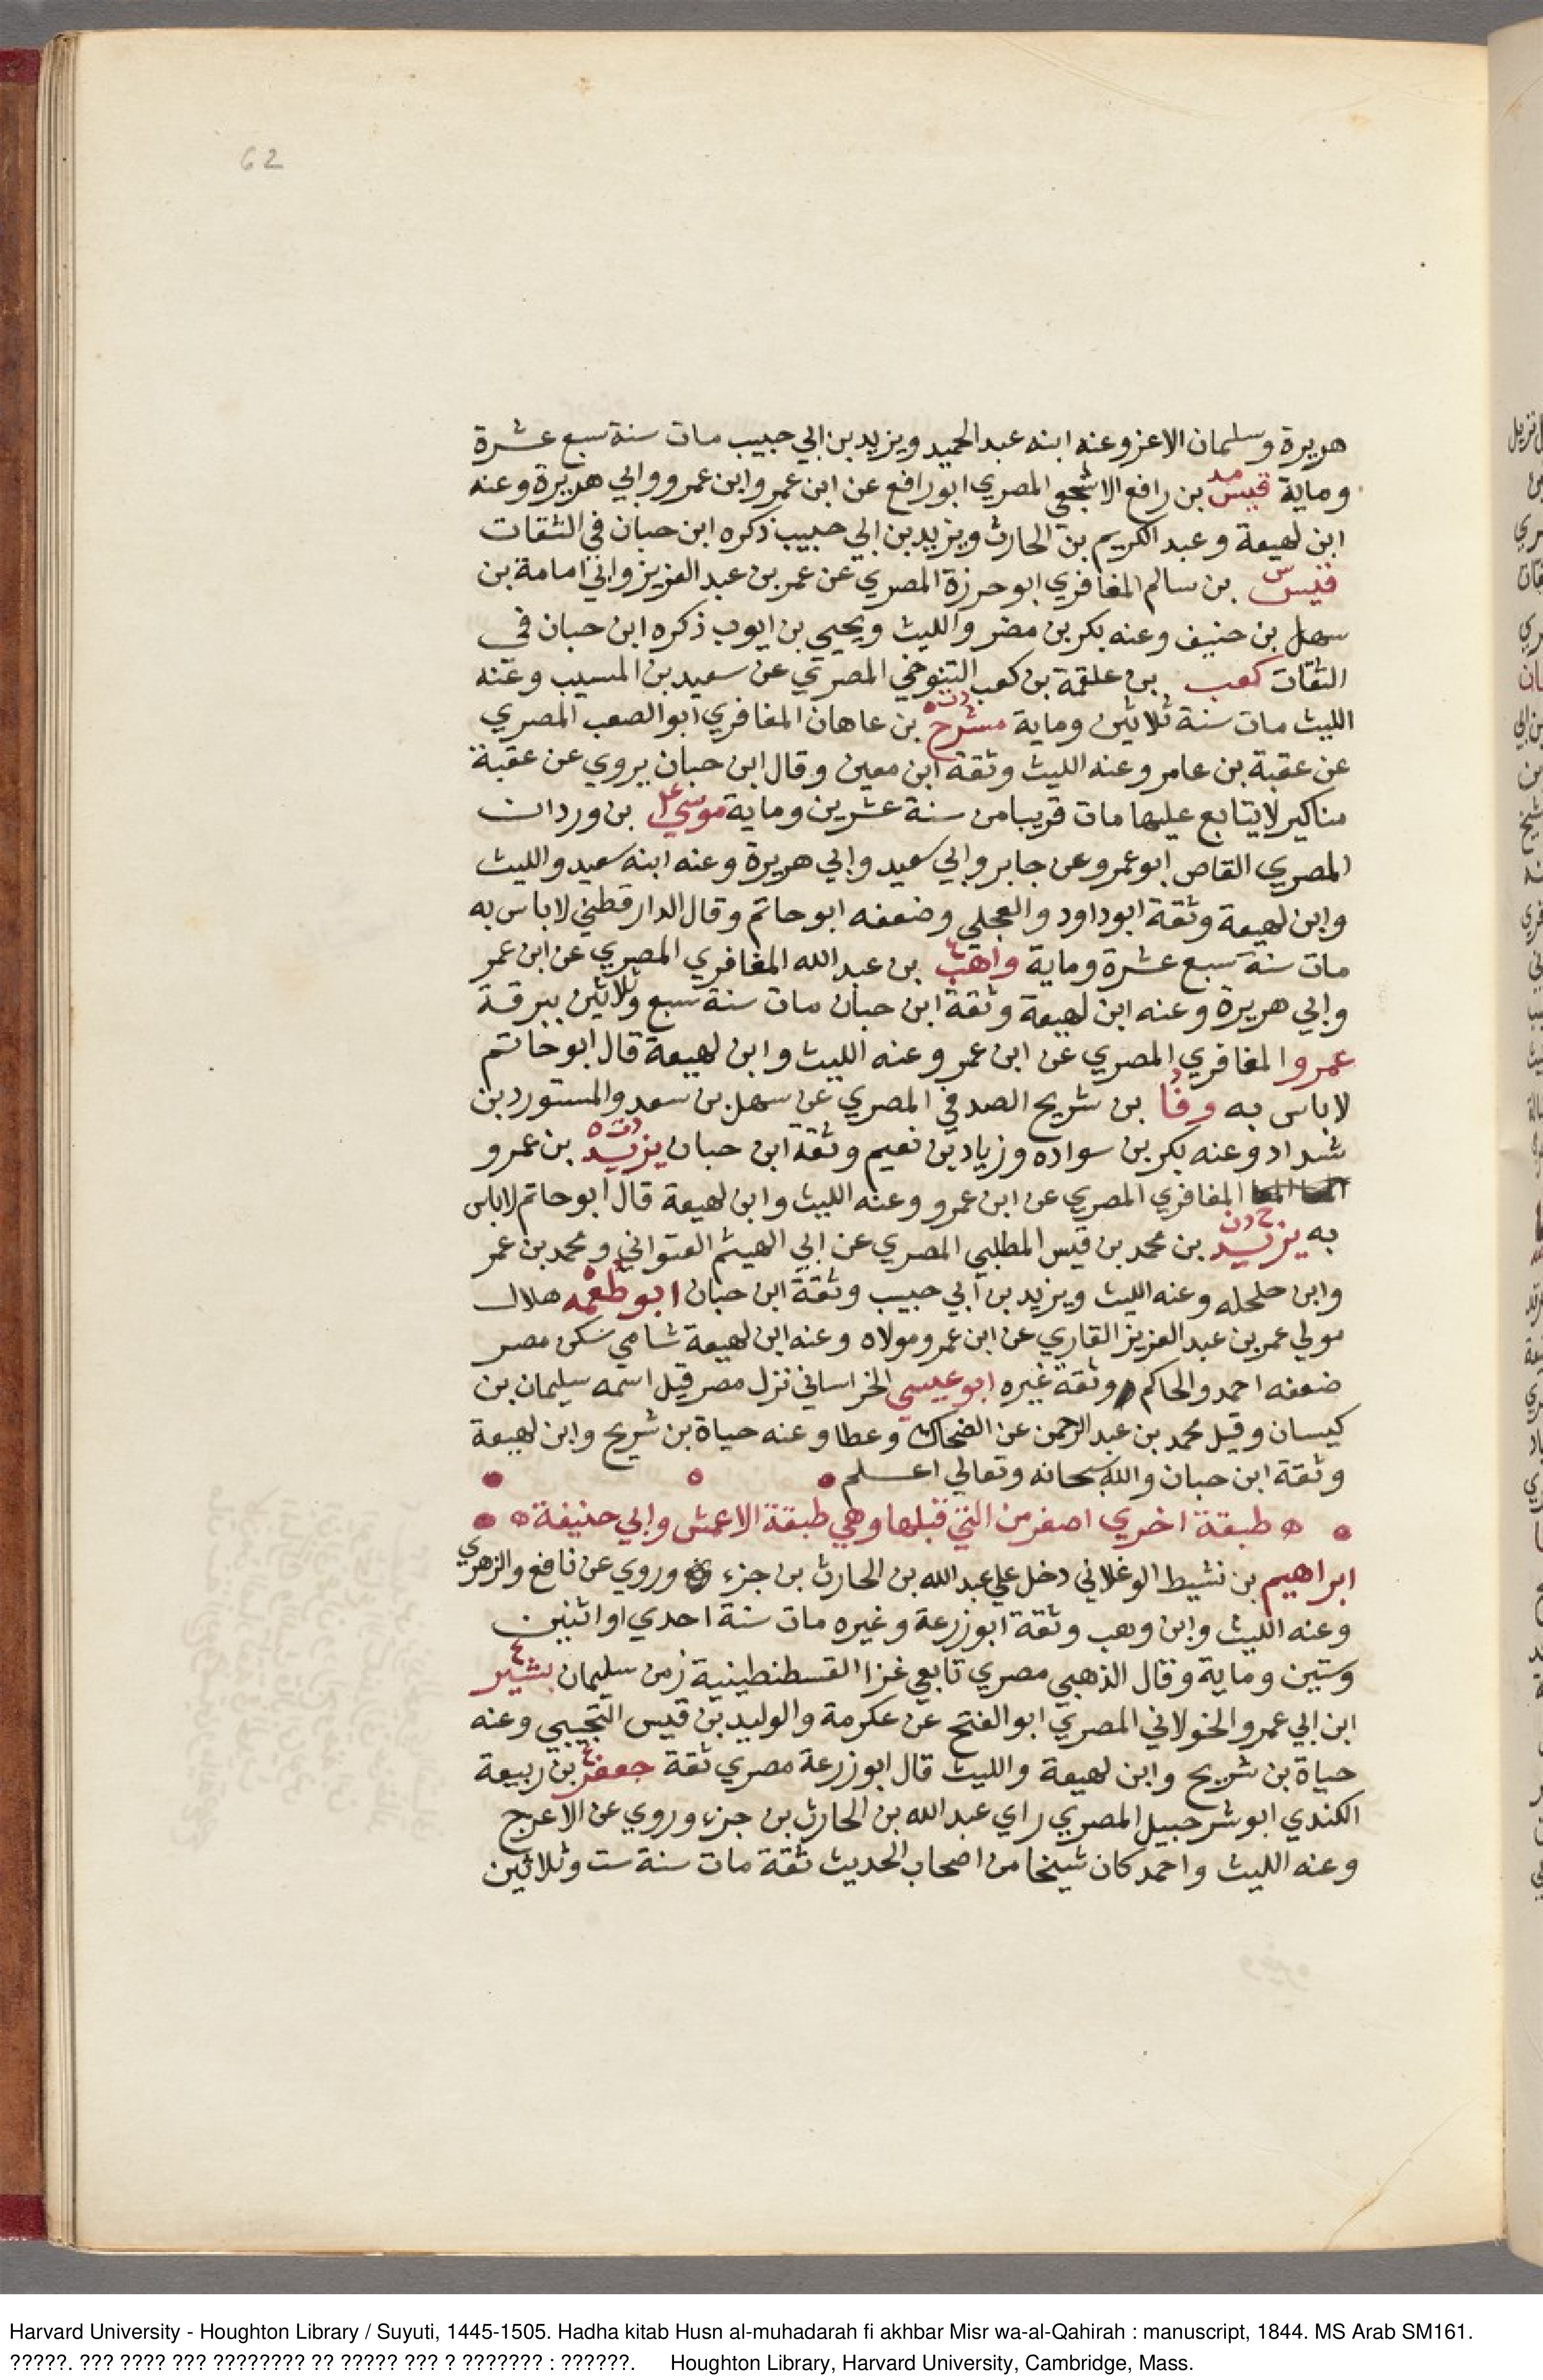 62
هريرة وسلمان الاعز وعنه ابنه عبد الحميد ويزيد بن ابي حبيب مات سنة سبع عشرة
وماية قيس بن رافع الاشجعي المصري ابو رافع عن ابن عمر وابن عمرو وابي هريرة وعنه
ابن لهيعة وعبد الكريم بن الحارث ويزيد بن ابي حبيب ذكره ابن حبان في الثقات
قيس بن سالم المغافري ابو حرزة المصري عن عمر بن عبد العزيز وابي امامة بن
سهل بن حنيف وعنه بكر بن مضر والليث ويحيي بن ايوب ذكره ابن حبان في
الثقات كعب بن علقمة بن كعب التنوخي المصري عن سعيد بن المسيب وعنه
الليث مات سنة ثلاثين وماية مشرح بن عاهان المغافري ابو الصعب المصري
عن عقبة بن عامر وعنه الليث وثقة ابن معين وقال ابن حبان يروي عن عقبة
مناكير لا يتابع عليها مات قريبا من سنة عشرين وماية موسي بن وردان
المصري القاص ابو عمرو عن جابر وابي سعيد وابي هريرة وعنه ابنه سعيد والليث
وابن لهيعة وثقة ابو داود والعجلي وضعفه ابو حاتم وقال الدارقطني لا باس به
مات سنة سبع عشرة وماية واهب بن عبد الله المغافري المصري عن ابن عمر
وابي هريرة وعنه ابن لهيعة وثقة ابن حبان مات سنة سبع وثلاثين ببرقة
عمرو المغافري المصري عن ابن عمر وعنه الليث وابن لهيعة قال ابو حاتم
لا باس به وفا بن شريح الصدفي المصري عن سهل بن سعد والمستورد بن
شداد وعنه بكر بن سواده وزياد بن نعيم وثقة ابن حبان يزيد بن عمرو
المغافري المصري عن ابن عمرو وعنه الليث وابن لهيعة قال ابو حاتم لا باس
به يزيد بن محمد بن قيس المطلبي المصري عن ابي الهيثم العتواني ومحمد بن عمر
وابن حلحله وعنه الليث ويزيد بن ابي حبيب وثقة ابن حبان ابو طعمه هلال
مولي عمر بن عبد العزيز القاري عن ابن عمر ومولاه وعنه ابن لهيعة شامي سكن مصر
ضعفه احمد والحاكم وثقة غيره ابو عيسي الخراساني نزل مصر قيل اسمه سليمان بن
كيسان وقيل محمد بن عبد الرحمن عن الضحاك وعطا وعنه حياة بن شريح وابن لهيعة
وثقة ابن حبان والله سبحانه وتعالي اعلم
طبقة اخري اصغر من التي قبلها وهي طبقة الاعمش وابي حنيفة
ابراهيم بن نشيط الوغلاني دخل علي عبد الله بن الحارث بن جزء وروي عن نافع والزهري
وعنه الليث وابن وهب وثقة ابو زرعة وغيره مات سنة احدي او اثنين
وستين وماية وقال الذهبي مصري تابعي غزا القسطنطينية زمن سليمان بشير
ابن ابي عمرو الخولاني المصري ابو الفتح عن عكرمة والوليد بن قيس التجيبي وعنه
حياة بن شريح وابن لهيعة والليث قال ابو زرعة مصري ثقة جعفر بن ربيعة
الكندي ابو شرحبيل المصري راي عبد الله بن الحارث بن جزء وروي عن الاعرج
وعنه الليث واحمد كان شيخا من اصحاب الحديث ثقة مات سنة ست وثلاثين
Harvard University - Houghton Library / Suyuti, 1445-1505. Hadha kitab Husn al-muhadarah fi akhbar Misr wa-al-Qahirah : manuscript, 1844. MS Arab SM161.
?????. ??? ???? ??? ???????? ?? ????? ??? ? ??????? : ??????. Houghton Library, Harvard University, Cambridge, Mass.